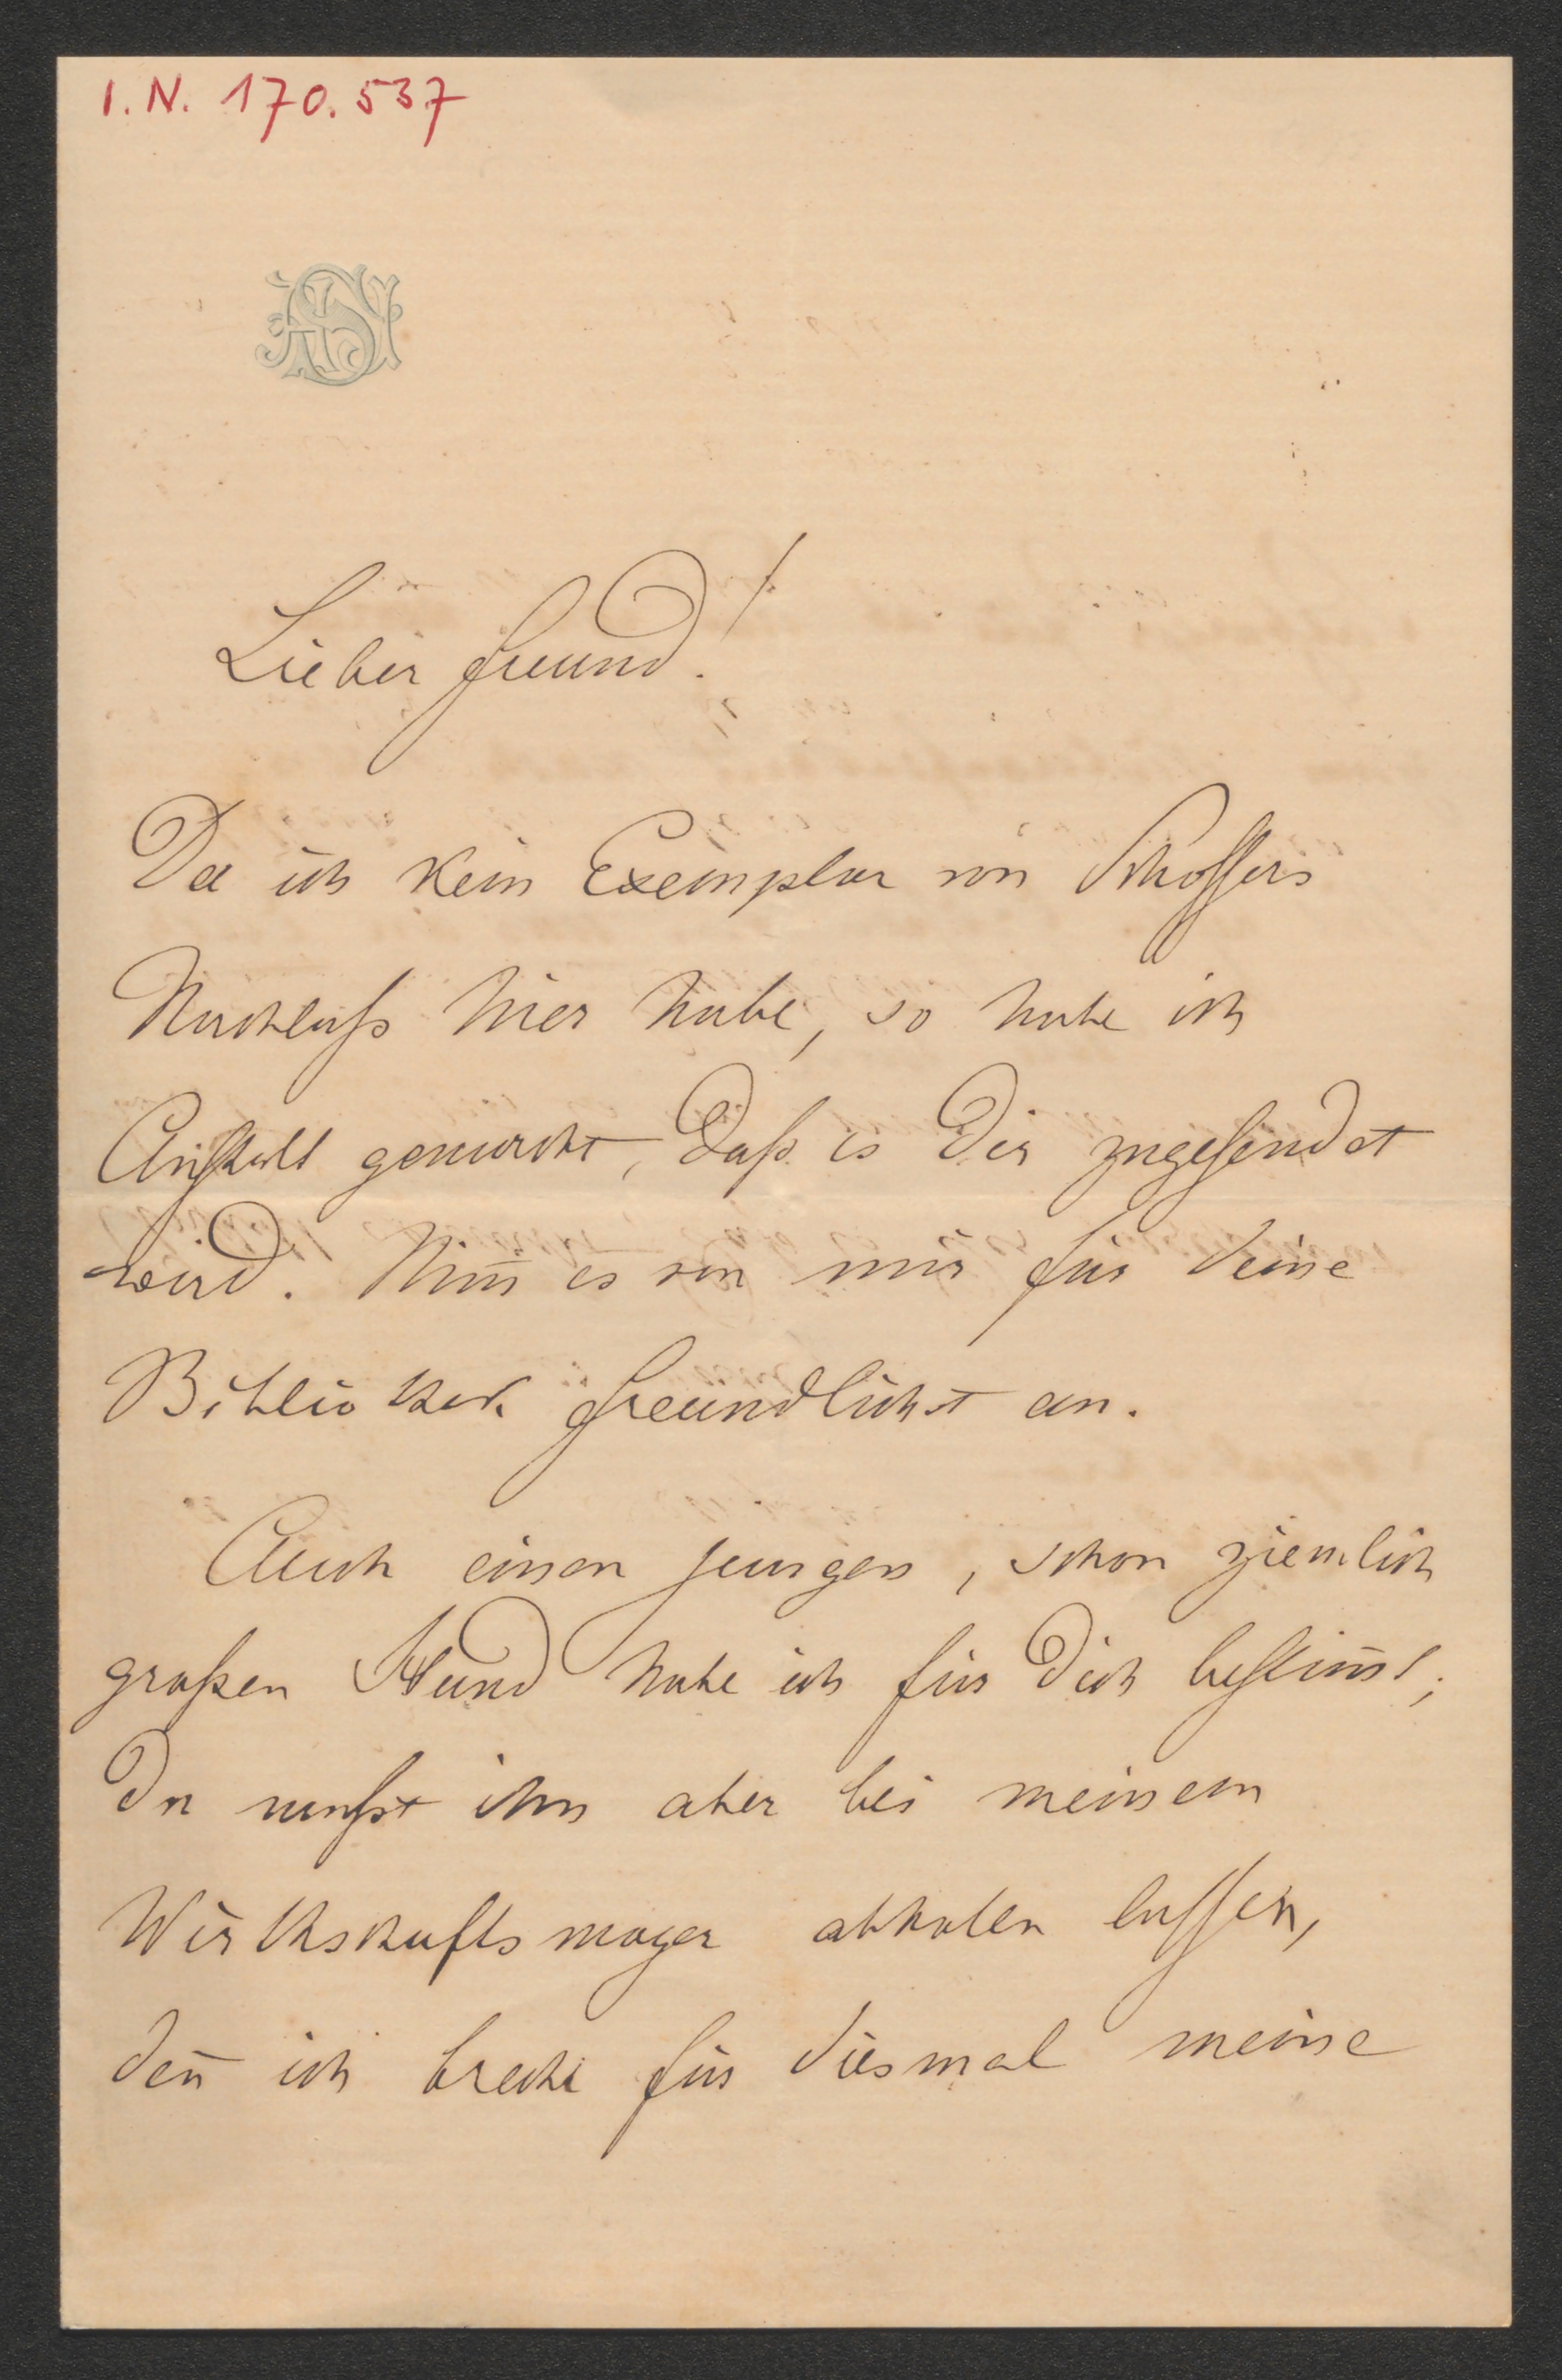 I. N. 170.537
Lieber Freund!
Da ich kein Exemplar von Schossers
Nachlaß hier habe, so habe ich
Anstalt gemacht, daß es Dir zugesendet
wird. Nim̄ es von mir für Deine
Bibliothek freundlichst an.
Auch einen jungen, schon ziemlich
großen Hund habe ich für Dich bestim̄t;
Du mußt ihn aber bei meinem
Wirthschaftsmayer abholen lassen,
den̄ ich breche für diesmal meine